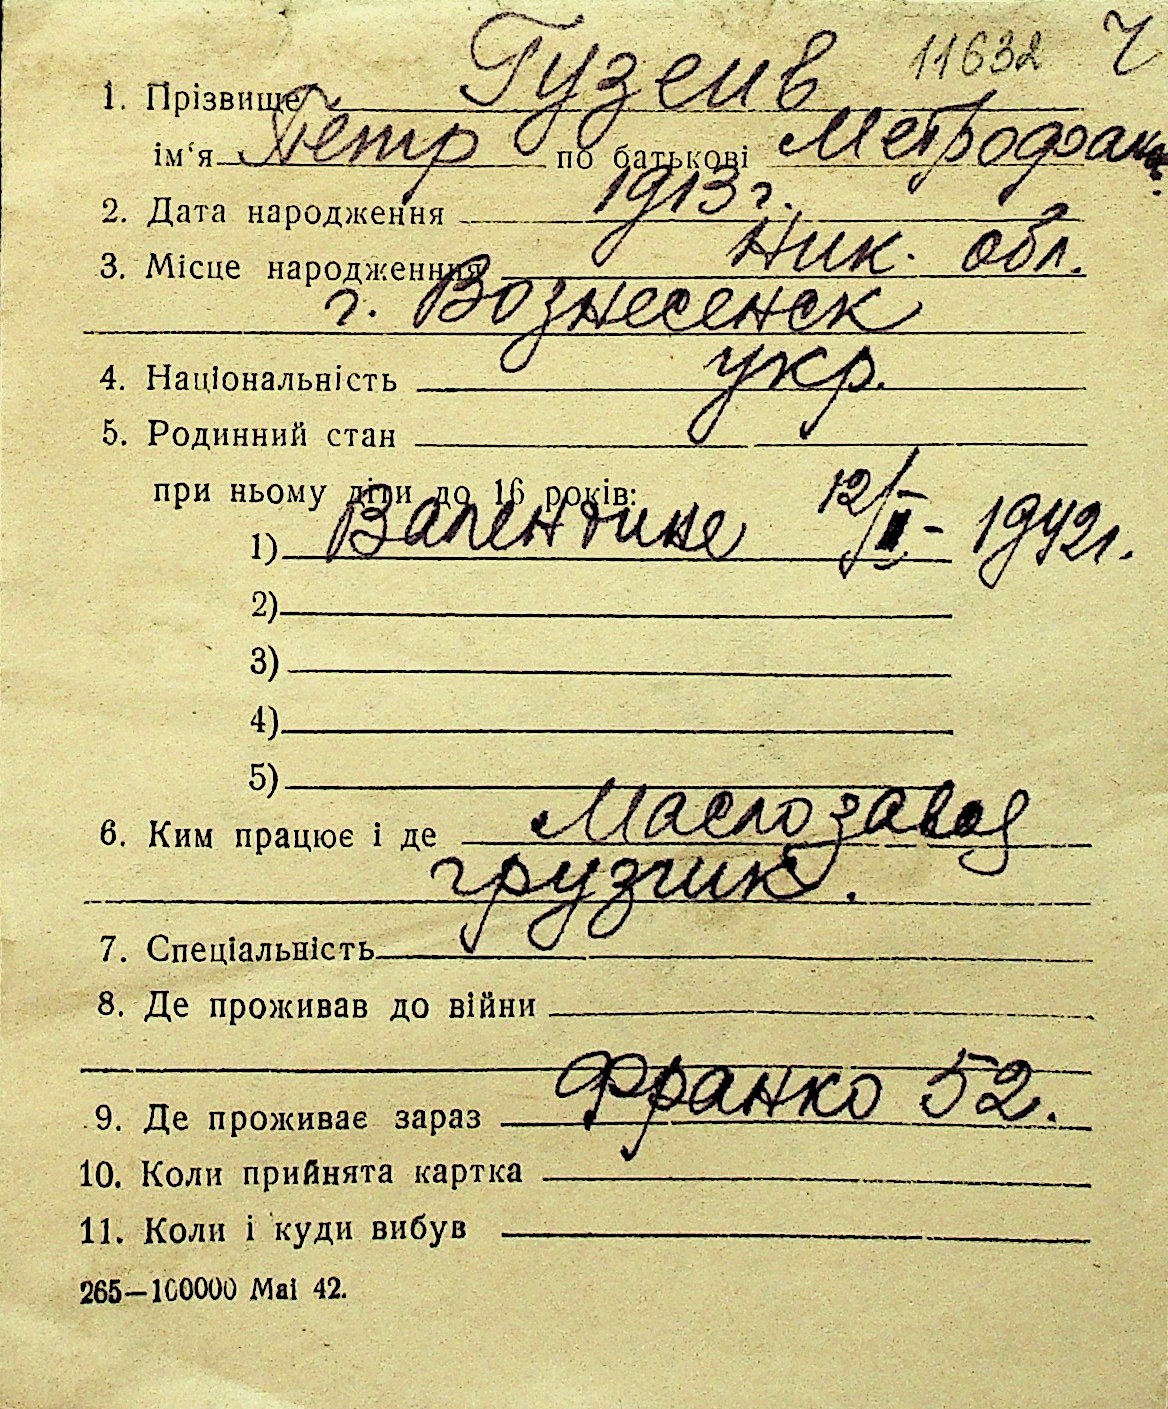 11632 Ч
1. Прізвище Гузеив
ім‘я Петр по батькові Метрофан
2. Дата народження 1913 г.
3. Місце народженння Ник. обл.
г. Вознесенск
4. Національність укр.
5. Родинний стан
при ньому діти до 16 років:
1) Валентине 12/II - 1942 г.
2)
3)
4)
5)
6. Ким працює і де Маслозавод
грузчик.
7. Спеціальність
8. Де проживав до війни
9. Де проживає зараз Франко 52.
10. Коли прийнята картка
11. Коли і куди вибув
265—100000 Mai 42.